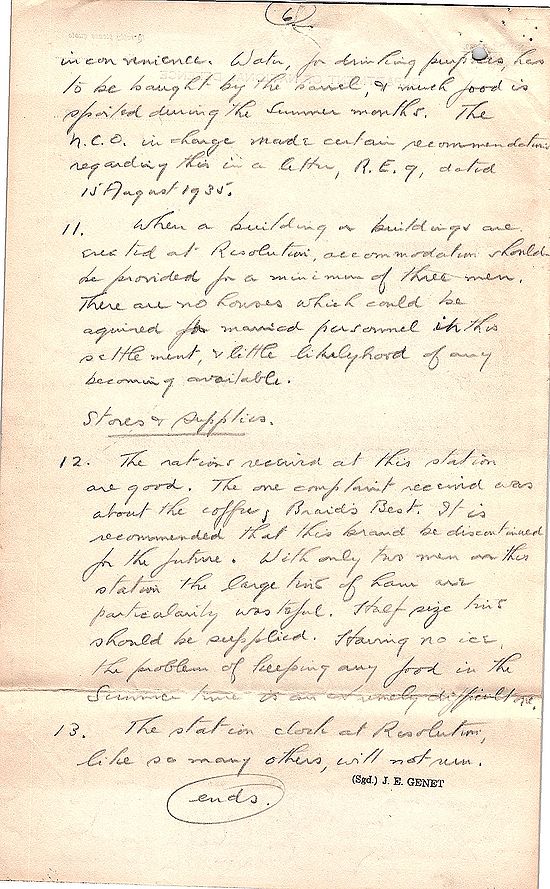 6
inconvenience. Water, for drinking purposes, has
to be bought by the barrel, & much food is
spoiled during the Summer months. The
N.C.O. in charge made certain recommendations
regarding this in a letter, R.E. 9, dated
15 August 1935.
11. When a building or buildings are
erected at Resolution, accommodation should
be provided for a minimum of three men.
There are no houses which could be
aquired for married personnel in this
settlement, & little likelyhood of any
becoming available.
Stores & Supplies.
12. The rations received at this station
are good. The one complaint received was
about the coffee, Braids Best. It is
recommended that this brand be discontinued
for the future. With only two men on this
station the large tins of ham are
particularity wasteful. Half size tins
should be supplied. Having no ice,
the problem of keeping any food in the
Summer time is an extremely difficult one.
13. The station clock at Resolution,
like so many others, will not run.
(Sgd.) J. E. GENET
ends.